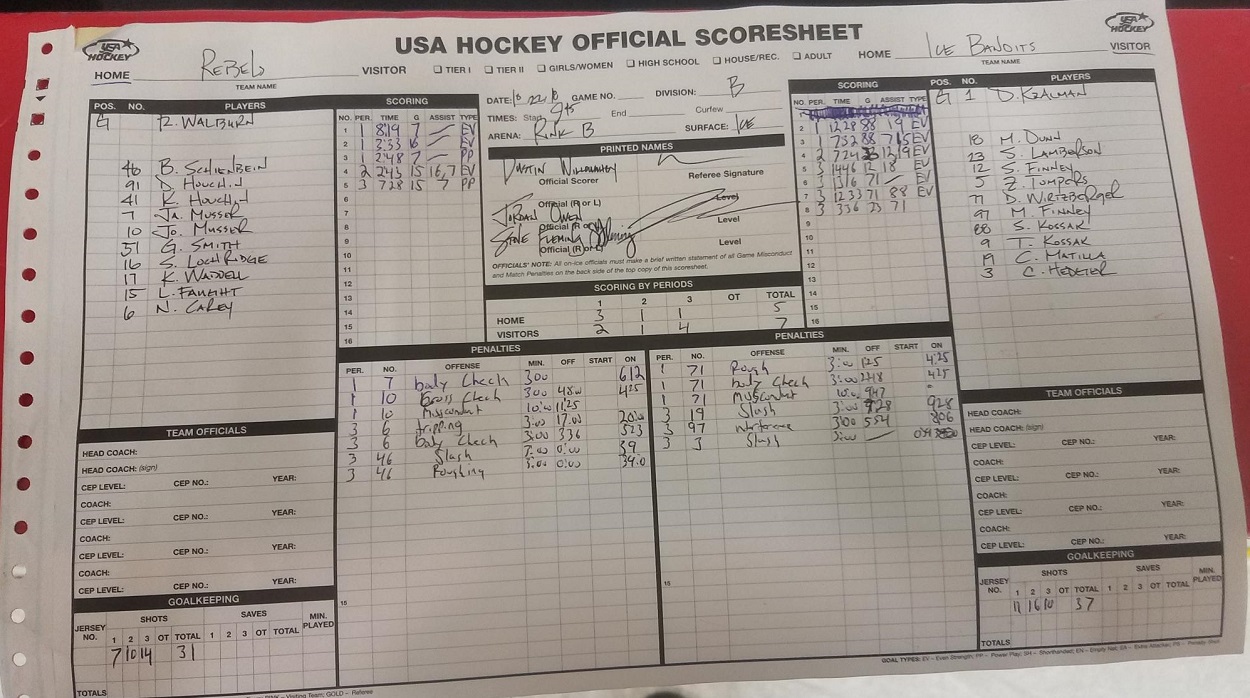 USA HOCKEY OFFICIAL SCORESHEET
USA HOCKEY
HOME REBELS VISITOR
TEAM NAME
☐ TIER I ☐ TIER II ☐ GIRLS/WOMEN ☐ HIGH SCHOOL ☐ HOUSE/REC. ☐ ADULT
HOME ICE BANDITS VISITOR
TEAM NAME
USA HOCKEY
POS. NO. PLAYERS
G R. WALBURN
46 B. SCHIENBEIN
91 D. HOUCHIN
41 K. HOUCHIN
7 JA. MUSSER
10 JO. MUSSER
51 G. SMITH
16 S. LOCHRIDGE
17 K. WADDELL
15 L. FAUGHT
6 N. CAREY
SCORING
NO. PER. TIME G ASSIST TYPE
1 1 819 7 — EV
2 1 3:33 6 — EV
3 1 2:48 7 — PP
4 2 243 15 16,7 EV
5 3 728 15 7 PP
6
7
8
9
10
11
12
13
14
15
16
DATE: 10 22 16 GAME NO. DIVISION: B
TIMES: Start 945 End Curfew
ARENA: RINK B SURFACE: ICE
PRINTED NAMES
Official Scorer Referee Signature
JORDAN OWEN
Official (R or L) Level
STEVE FLEMING
Official (R or L) Level
Official (R or L) Level
OFFICIALS' NOTE: All on-ice officials must make a brief written statement of all Game Misconduct
and Match Penalties on the back side of the top copy of this scoresheet.
SCORING BY PERIODS
1 2 3 OT TOTAL
HOME 3 1 1 5
VISITORS 2 1 4 7
SCORING
NO. PER. TIME G ASSIST TYPE
2 1 1228 88 19 EV
3 1 732 88 71 5 EV
4 2 724 23 12 19 EV
5 3 1446 12 18 EV
6 3 1316 71 —
7 3 1233 71 88 EV
8 3 336 23 71
9
10
11
12
13
14
15
16
POS. NO. PLAYERS
G 1 D. KRALMAN
18 M. DUNN
23 S. LAMBERSON
12 S. FINNEY
5 Z. TOMPERS
71 D. WIRTZBERGER
97 M. FINNEY
88 S. KOSSAK
9 T. KOSSAK
19 C. MATILLA
3 C. HECKLER
PENALTIES
PER. NO. OFFENSE MIN. OFF START ON
1 7 body Check 3:00 612
1 10 Cross Check 3:00 425
1 10 Misconduct 10:00 11:25
3 6 tripping 3:00 17:00
3 6 body Check 3:00 336
3 46 Slash 0:00
3 46 Roughing 3:00 0:00
15
PENALTIES
PER. NO. OFFENSE MIN. OFF START ON
1 71 Rough 3:00 125 4:25
1 71 body Check 3:00 425
1 71 Misconduct 10:00 947
3 19 Slash 3:00 928
3 97 Interference 3:00 554
3 3 Slash 3:00 —
15
TEAM OFFICIALS
HEAD COACH:
HEAD COACH: (sign)
CEP LEVEL: CEP NO.: YEAR:
COACH:
CEP LEVEL: CEP NO.: YEAR:
COACH:
CEP LEVEL: CEP NO.: YEAR:
COACH:
CEP LEVEL: CEP NO.: YEAR:
GOALKEEPING
JERSEY NO. SHOTS SAVES MIN. PLAYED
1 2 3 OT TOTAL 1 2 3 OT TOTAL
7 10 14 31
TOTALS
TEAM OFFICIALS
HEAD COACH:
HEAD COACH: (sign)
CEP LEVEL: CEP NO.: YEAR:
COACH:
CEP LEVEL: CEP NO.: YEAR:
COACH:
CEP LEVEL: CEP NO.: YEAR:
COACH:
CEP LEVEL: CEP NO.: YEAR:
GOALKEEPING
JERSEY NO. SHOTS SAVES MIN. PLAYED
1 2 3 OT TOTAL 1 2 3 OT TOTAL
11 16 10 37
TOTALS
GOAL TYPES: EV – Even Strength; PP – Power Play; SH – Shorthanded; EN – Empty Net; EA – Extra Attacker; PS – Penalty Shot
Visiting Team; GOLD – Referee